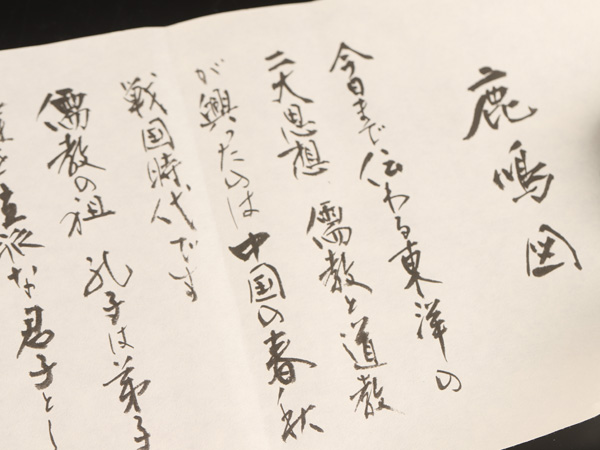 鹿鳴図
今日まで伝わる東洋の
二大思想 儒教と道教
が興ったのは中国の春秋
戦国時代です
儒教の祖 孔子は弟子
立派な君子とし